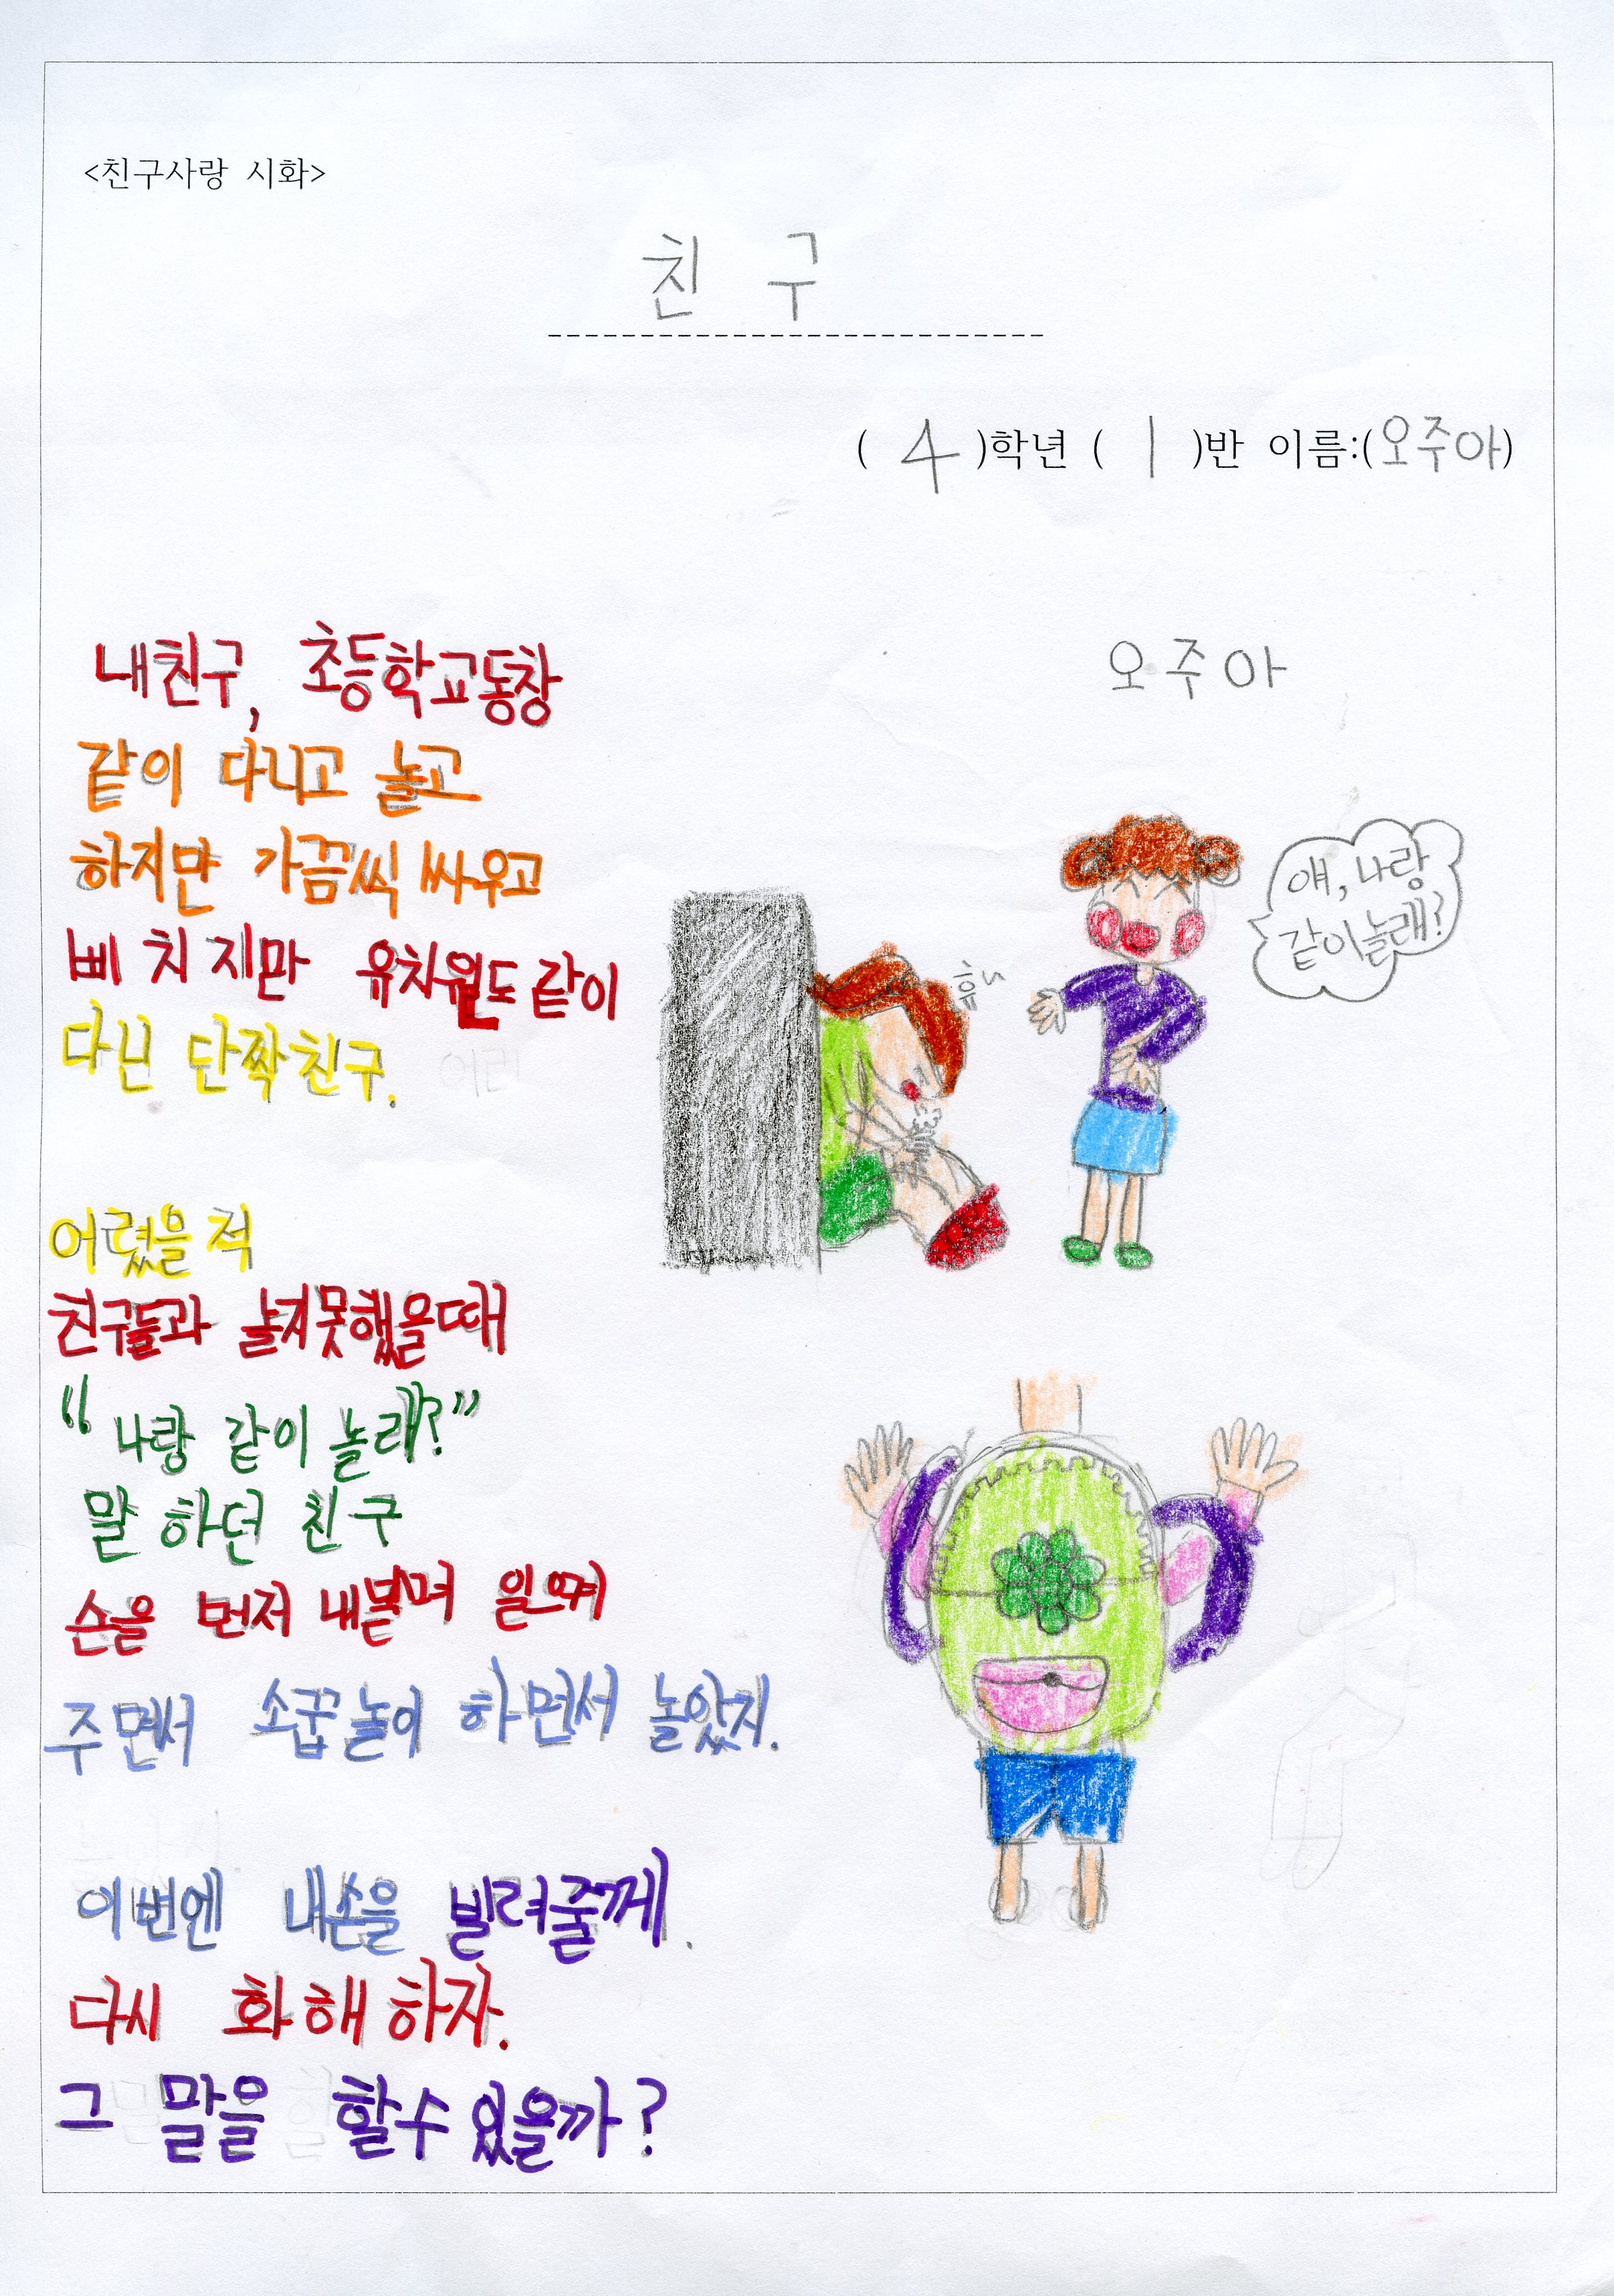 <친구사랑 시화>
친 구
( 4 )학년 ( 1 )반 이름:(오주아)
오주아
내친구, 초등학교동창
같이 다니고 놀고
하지만 가끔씩 싸우고
삐 치 지만 유치원도 같이
다닌 단짝친구.
어렸을 적
친구들과 놀지못했을때
"나랑 같이 놀래?"
말 하던 친구
손을 먼저 내밀며 일으켜
주면서 소꿉놀이 하면서 놀았지.
이번엔 내손을 빌려줄께.
다시 화해하자.
그 말을 할수 있을까?
휴~
얘, 나랑
같이놀래?